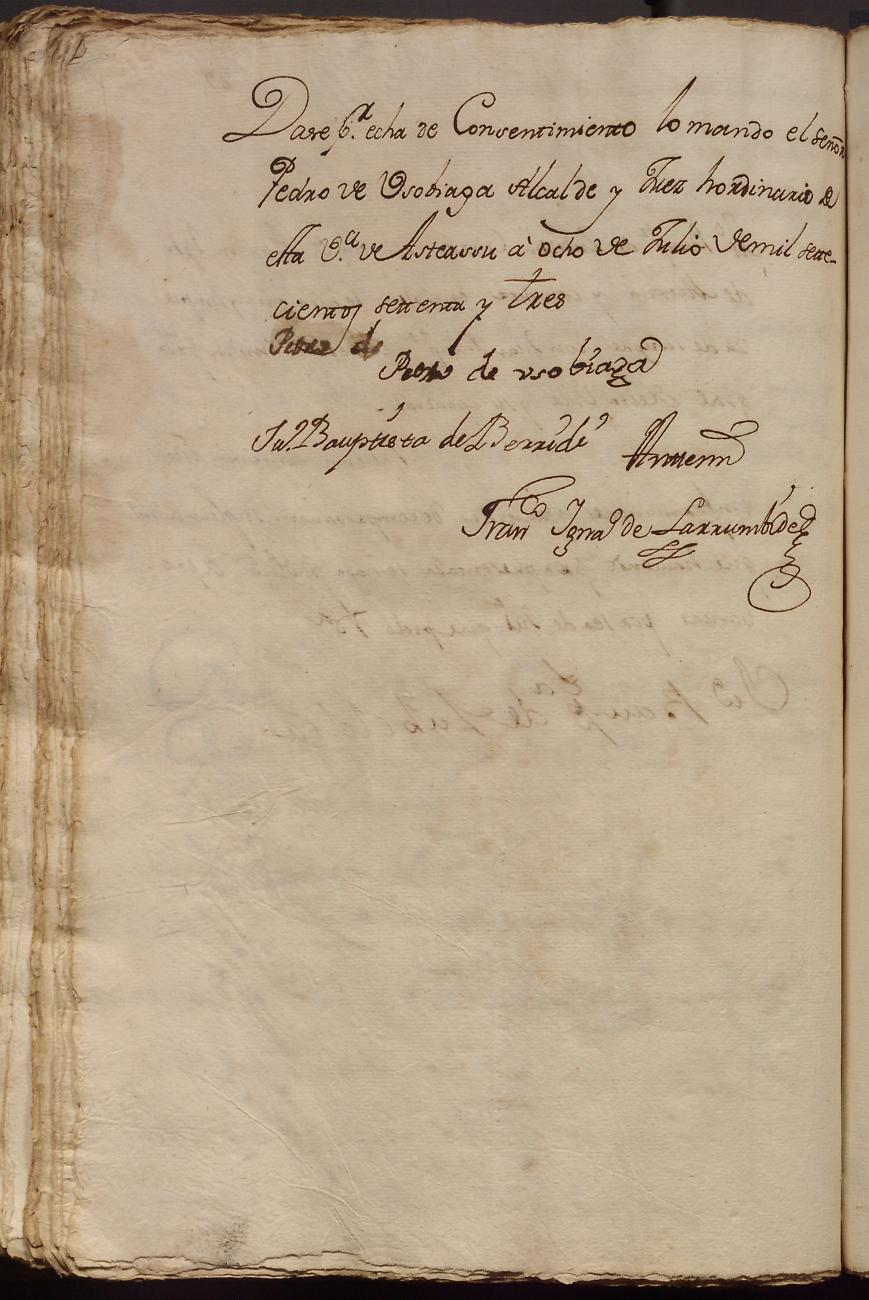 Dase p.r echa de Consentimiento lo mando el señor
Pedro de Usobiaga Alcalde y Juez hordinario de
esta V.a de Asteassu à ocho de Julio de mil sete-
cientos settenta y tres
Pedro de
Pedro de usobiaga
Ju.o Bauptista de Berridi
Antemi
Fran.co Igna.o de Larrumbide